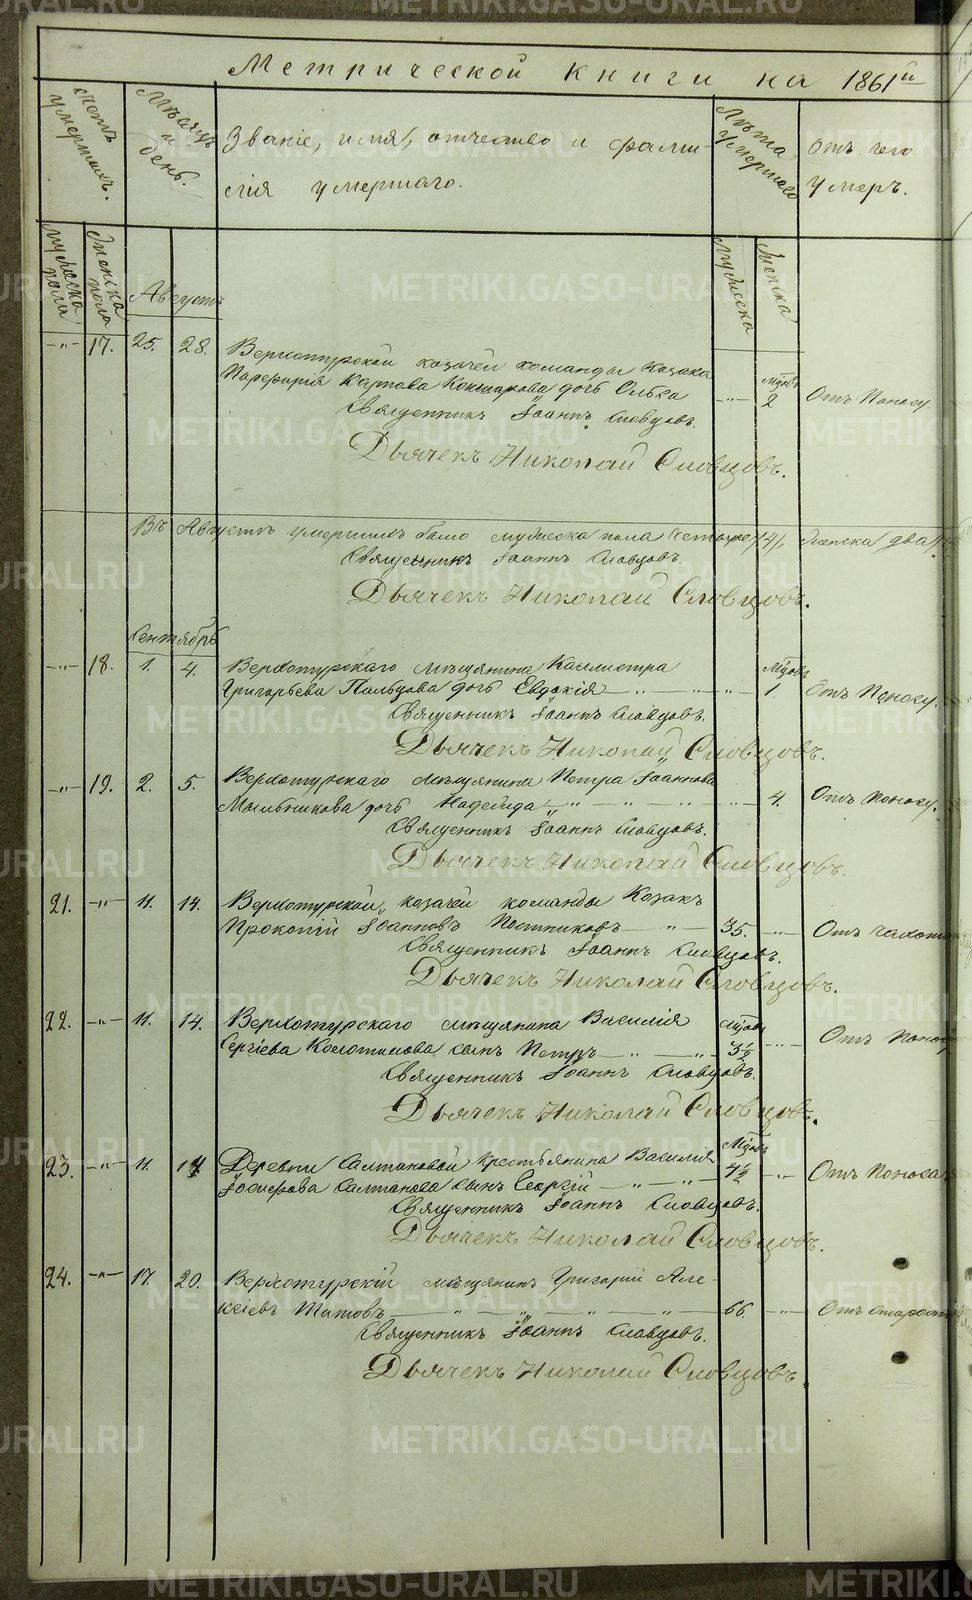 Метрической книги на 1861й
Счетъ умершихъ.
Мѣсяцъ и день.
Званіе, имя, отчество и фами-
лія умершаго.
Лѣта умершаго
Отъ чего
умеръ.
Мужеска пола
Женска пола
Августъ
Мужеска
Женска
—„— 17. 25. 28. Верхотурской козачей команды Козака
Порфирія Карпова дочь Ольга —„— 2 Отъ Поносу
Священникъ Іоаннъ Словцовъ.
Дьячекъ Николай Словцовъ.
Въ Августѣ умершихъ было мужеска пола четыре /4/, женска два
Священникъ Іоаннъ Словцовъ.
Дьячекъ Николай Словцовъ.
Сентябрь
—„— 18. 1. 4. Верхотурскаго мѣщанина Каллистра
Григорьева Пальцова дочь Евдокія —„—„—„— 1. Отъ Поносу.
Священникъ Іоаннъ Словцовъ.
Дьячекъ Николай Словцовъ.
—„— 19. 2. 5. Верхотурскаго мѣщанина Петра Іоаннова
Мыльникова дочь Надежда —„—„—„— 4. Отъ Поносу.
Священникъ Іоаннъ Словцовъ.
Дьячекъ Николай Словцовъ.
21. —„— 11. 14. Верхотурской козачей команды Козакъ
Прокопій Іоанновъ Постниковъ —„— 35. —„— Отъ чахот
Священникъ Іоаннъ Словцовъ.
Дьячекъ Николай Словцовъ.
22. —„— 11. 14. Верхотурскаго мѣщанина Василія
Сергіева сынъ Петръ —„—„— 3½ —„— Отъ Понос
Священникъ Іоаннъ Словцовъ.
Дьячекъ Николай Словцовъ.
23. —„— 11. 14 Деревни Салтановой Крестьянина Василія
Іосифова Салтанова сынъ Георгій —„—„— 4½ —„— Отъ Поноса
Священникъ Іоаннъ Словцовъ.
Дьячекъ Николай Словцовъ.
24. —„— 17. 20. Верхотурскій мѣщанинъ Григорій Але-
ксіевъ Титовъ —„—„—„—„— 66. —„— Отъ старост
Священникъ Іоаннъ Словцовъ.
Дьячекъ Николай Словцовъ.
METRIKI.GASO-URAL.RU